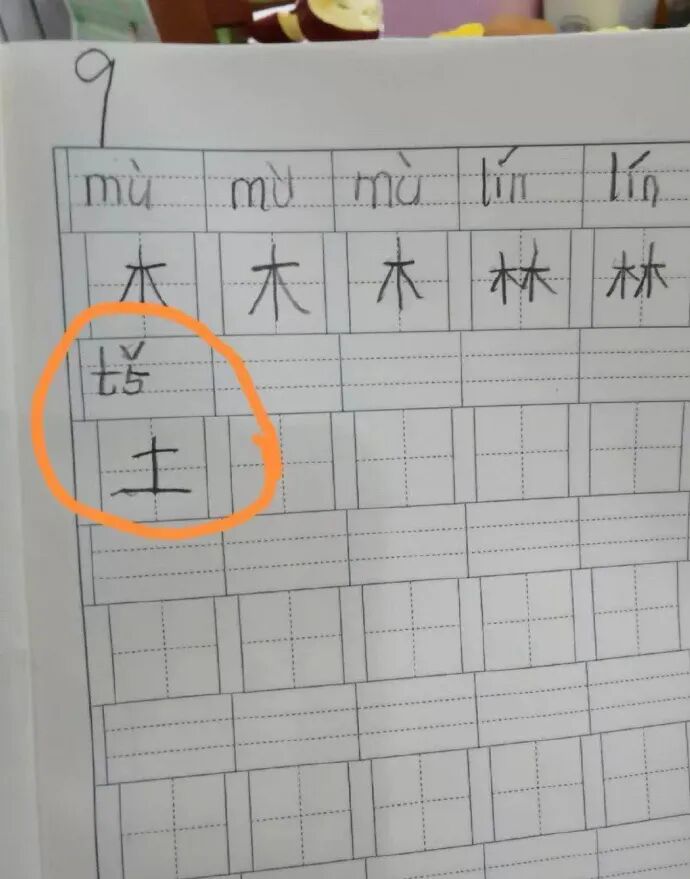 9
mù mù mù lín lín
木 木 木 林 林
t5̌
土